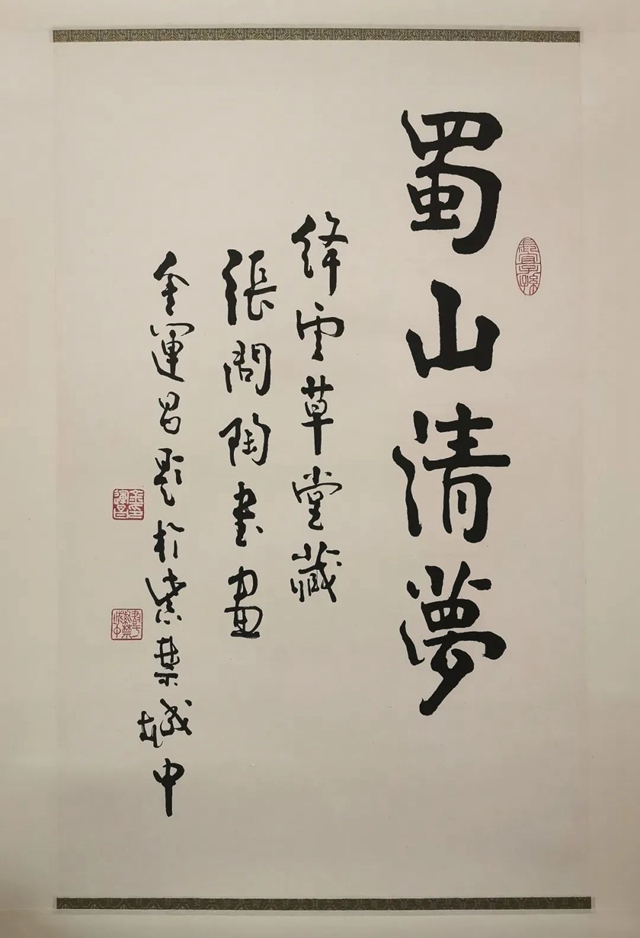 蜀山清夢
绛雲草堂藏
張問陶書畫
金運昌題於紫禁城中